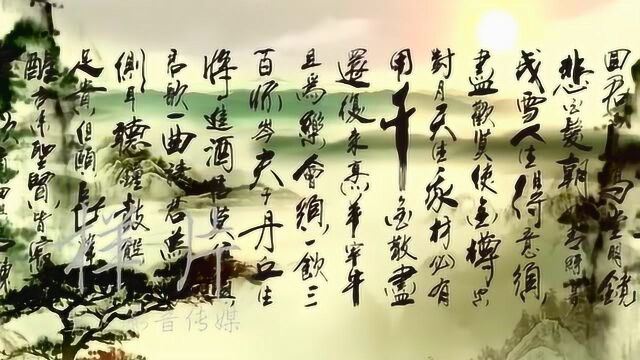 回君
高堂明鏡
悲白髮朝
成雪人生得意須
盡歡莫使金樽空
對月天生我材必有
用千金散盡
還復來烹羊宰牛
且為樂會須一飲三
百杯岑夫子丹丘生
將進酒
君歌一曲請君為
側耳聽鐘鼓饌
足貴但願長醉
醒古來聖賢皆寂
陳
样片
影音传媒